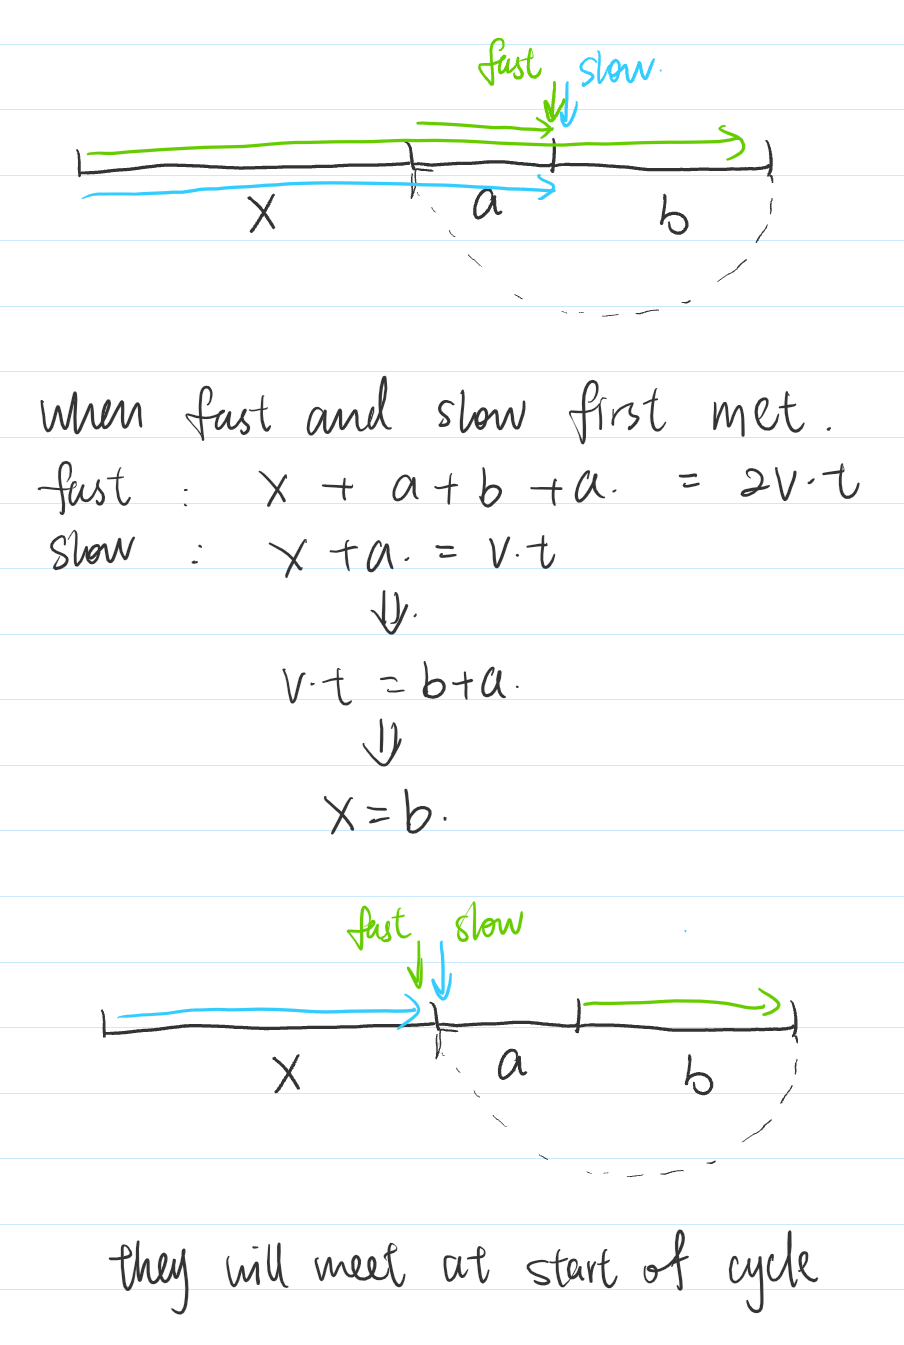 fast slow.
x a b
when fast and slow first met.
fast : x + a + b + a. = 2v·t
slow : x + a. = v·t
⇓.
v·t = b+a.
⇓
x = b.
fast slow
x a b
they will meet at start of cycle